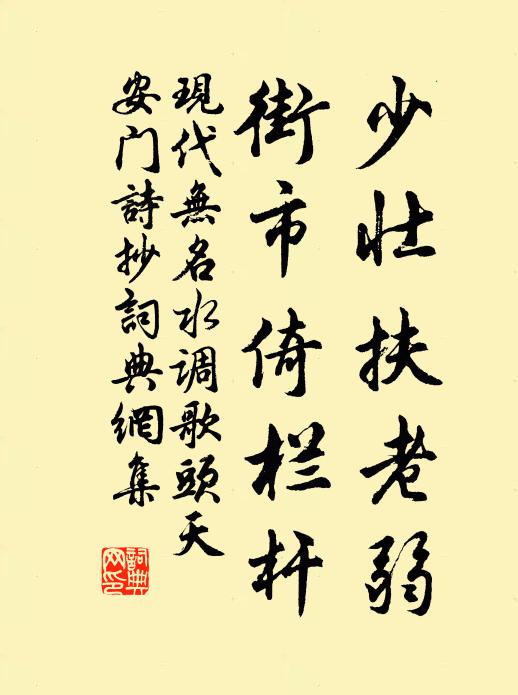 少壮扶老弱
街市倚栏杆
現代無名水调歌頭天
安门詩抄詞典網集
詞典
网印